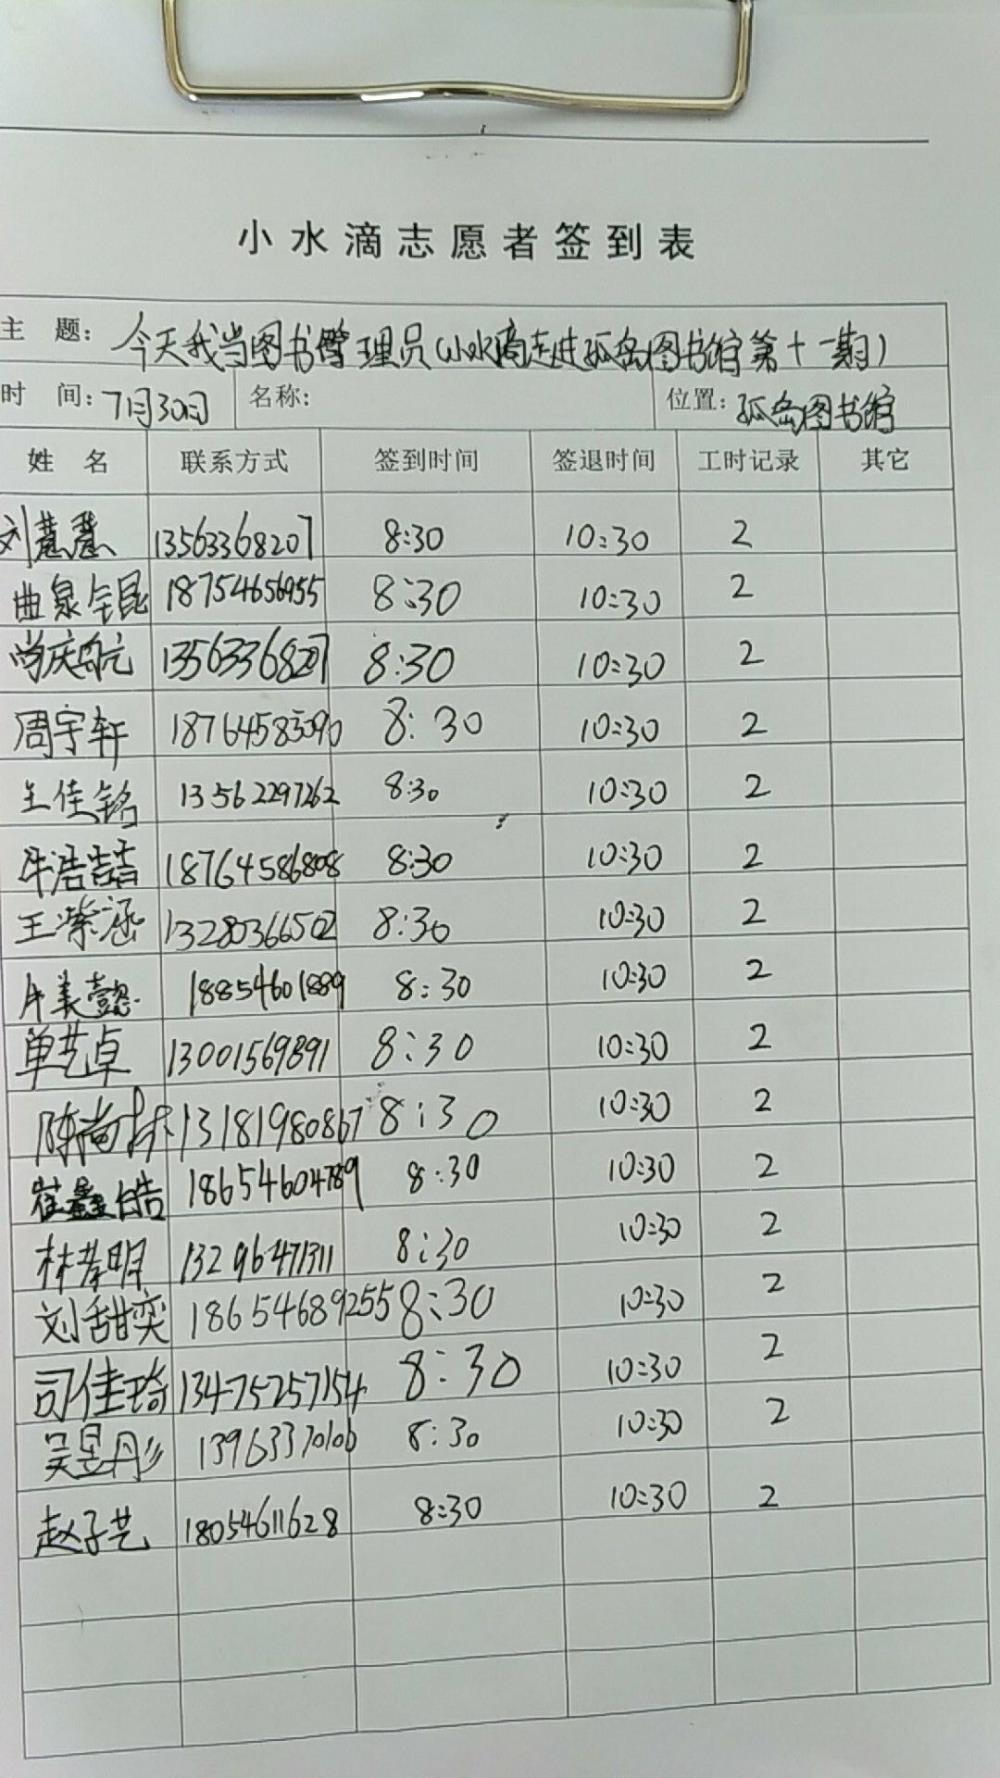 小水滴志愿者签到表
主 题: 今天我当图书管理员(小水滴走进孤岛图书馆第十一期)
时 间: 7月30日 名称: 位置: 孤岛图书馆
姓 名 联系方式 签到时间 签退时间 工时记录 其它
刘慧慧 13563368207 8:30 10:30 2
曲泉全昆 18754656955 8:30 10:30 2
尚庆 13563368207 8:30 10:30 2
周宇轩 18764583090 8:30 10:30 2
王佳铭 13562297262 8:30 10:30 2
牛浩喆 18764586808 8:30 10:30 2
王紫涵 13280366502 8:30 10:30 2
美懿 18854601889 8:30 10:30 2
单艺卓 13001569891 8:30 10:30 2
陈尚 13181980867 8:30 10:30 2
崔鑫皓 18654604789 8:30 10:30 2
林孝明 13296471311 8:30 10:30 2
刘甜奕 18654689255 8:30 10:30 2
司佳琦 13475257154 8:30 10:30 2
吴昱彤 13963370106 8:30 10:30 2
赵子艺 18054611628 8:30 10:30 2